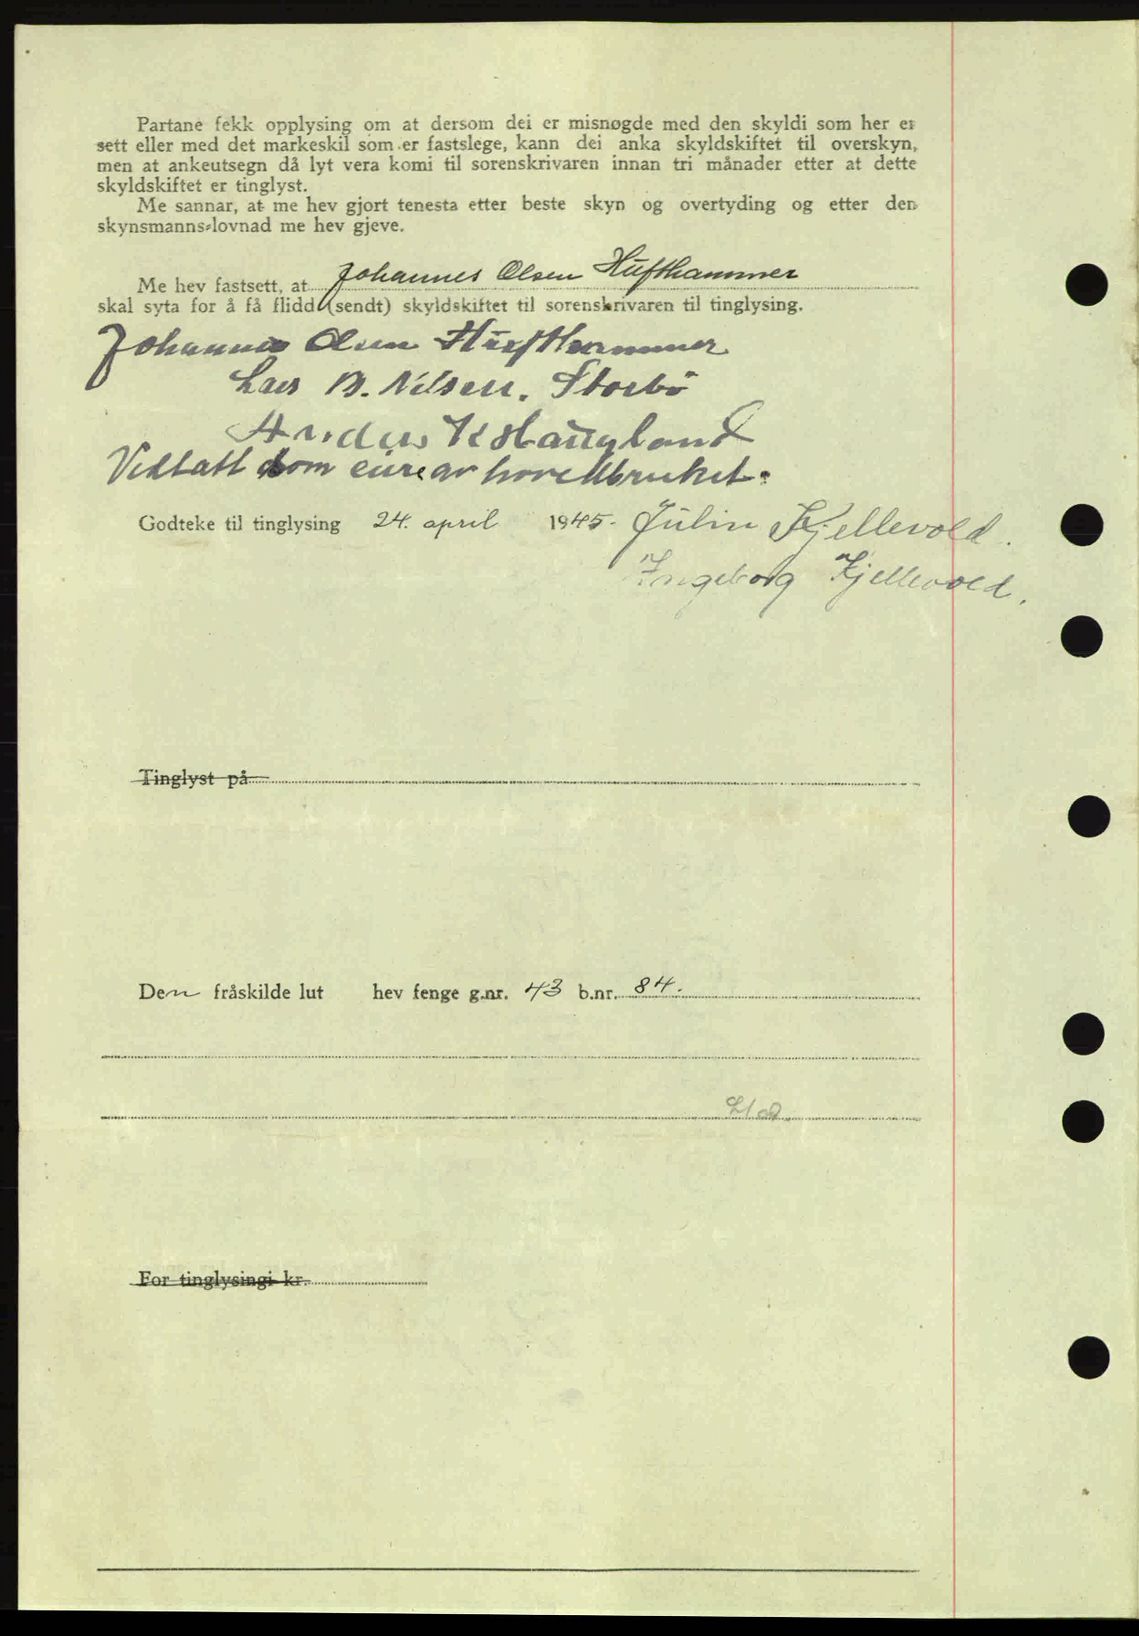 Partane fekk opplysing om at dersom dei er misnøgde med den skyldi som her er
sett eller med det markeskil som er fastslege, kann dei anka skyldskiftet til overskyn,
men at ankeutsegn då lyt vera komi til sorenskrivaren innan tri månader etter at dette
skyldskiftet er tinglyst.
Me sannar, at me hev gjort tenesta etter beste skyn og overtyding og etter den
skynsmanns-lovnad me hev gjeve.
Me hev fastsett, at Johannes Olsen Hufthammer
skal syta for å få flidd (sendt) skyldskiftet til sorenskrivaren til tinglysing.
Johannes Olsen Hufthammer
Lars B. Nilsen. Storbö
Anders K Haugland
Vedtatt som eiere av hovedbruket:
Godteke til tinglysing 24. april 1945. Julin Kjellevold.
Ingeborg Kjellevold.
Tinglyst på
Den fråskilde lut hev fenge g.nr. 43 b.nr. 84.
For tinglysingi kr.